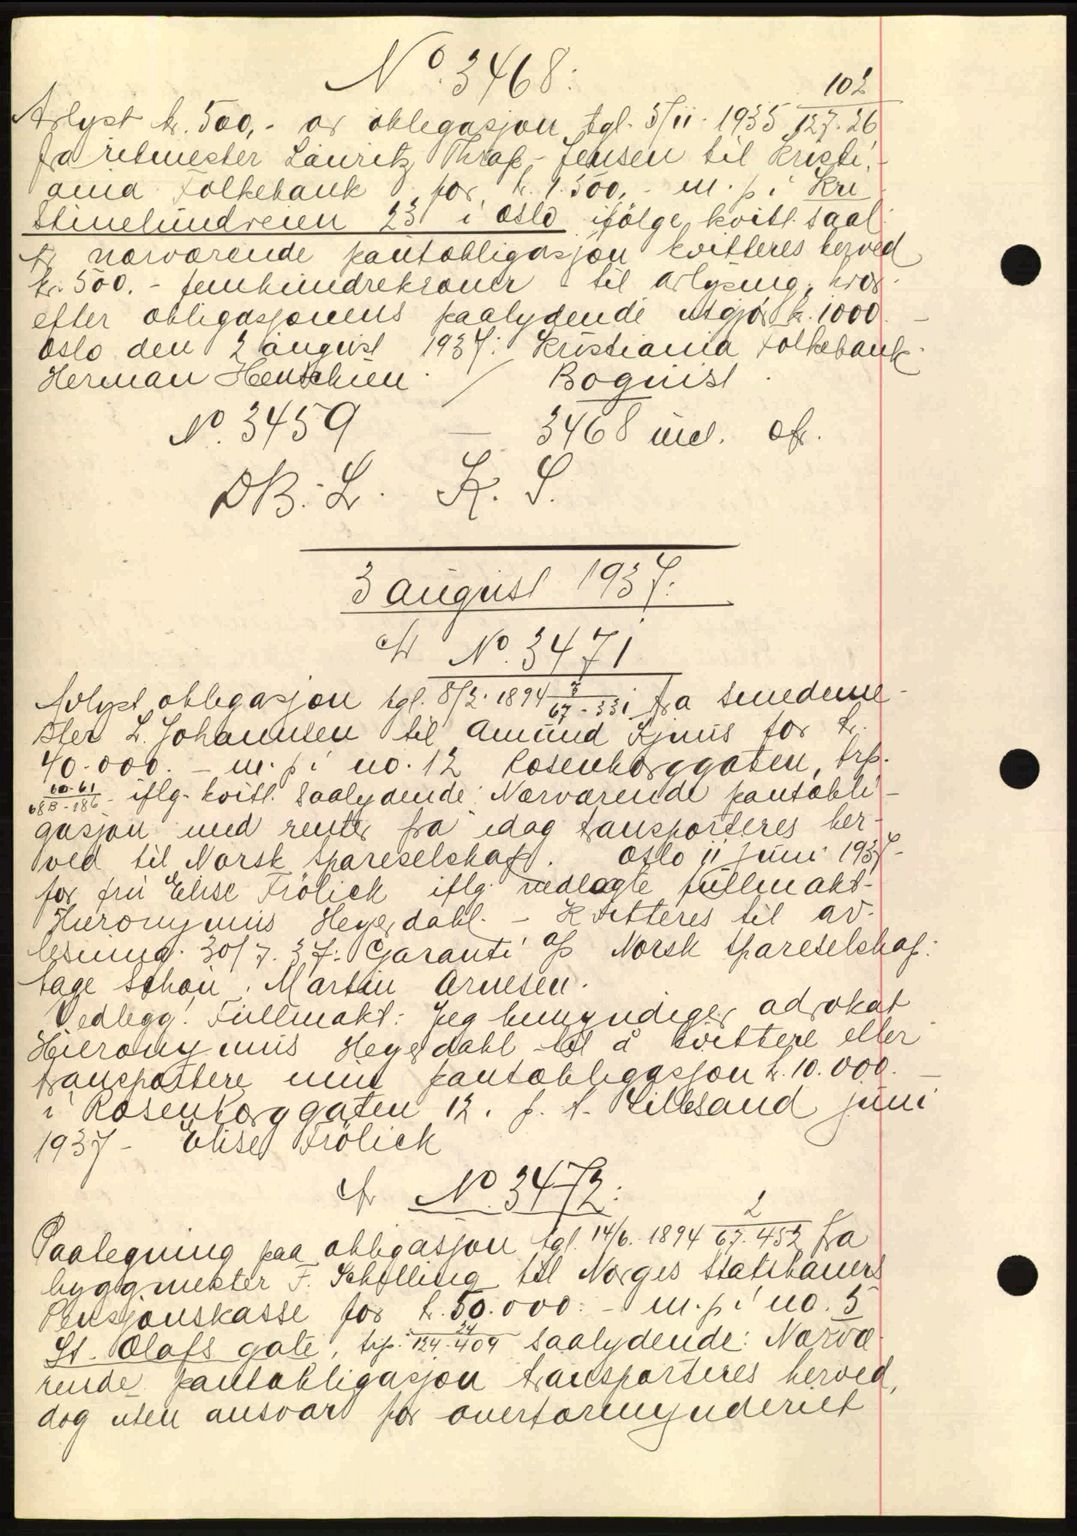 No. 3468:
Avlyst kr. 500,- av obligasjon tgl. 5/11. 1935 102/127.26
fra ritmester Lauritz Thrap-Jensen til Kristi-
ania Folkebank for kr. 1.500,- m. p. i Kri
stinelundveien 23 i Oslo ifölge kvitt. saal
Pr nærværende pantobligasjon kvitteres herved
kr. 500.- femhundrekroner til avlysing, hvor-
efter obligasjonens paalydende utgjör kr. 1000 -
Oslo den 2 august 1937: Kristiania Folkebank.
Herman Hentschien. / Boquist.
No. 3459 — 3468 incl. afr.
DB. L. K. S.
3 august 1937:
afr No. 3471
Avlyst obligasjon tgl. 8/2. 1894 7/67-331 fra smedeme-
ster L. Johannsen til Amund Kjuus for kr.
40.000.- m. p. i no. 12 Rosenborggaten, trp.
60-61/68B-186 - iflg. kvitt. saalydende: Nærværende pantobli-
gasjon med renter fra idag transporteres her-
ved til Norsk Spareselskap. Oslo 11 juni 1937-
for fru Elise Frölick iflg. vedlagte fullmakt-
Hieronymus Heyerdahl. - Kvitteres til av-
lesning. 30/7. 37: Garanti a/s Norsk Spareselskap:
Tage Schön. Martin Arnesen.
Vedlegg: Fullmakt: Jeg bemyndiger advokat
Hieronymus Heyerdahl til å kvittere eller
transportere min pantobligasjon kr. 10.000. -
i Rosenborggaten 12. f. t. Lillesand juni
1937- Elise Frölick
afr No. 3472:
Paategning paa obligasjon tgl. 14/6. 1894 2/67.452 fra
byggmester F. Schilling til Norges Statsbaners
Pensjonskasse for kr. 50.000:- m. p. i no. 5
St. Olafs gate, trp. 34/124-409 saalydende: Nærvæ-
rende pantobligasjon transporteres herved,
dog uten ansvar for overformynderiet